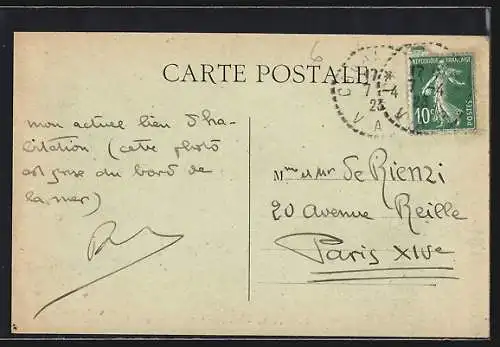 CARTE POSTALE
RÉPUBLIQUE FRANÇAISE
10c
POSTES
17
7 - 4
23
VAR
mon actuel lieu d'ha-
bitation (cette photo
est prise du bord de
la mer)
Mme et Mr De Rienzi
20 Avenue Reille
Paris XIVe